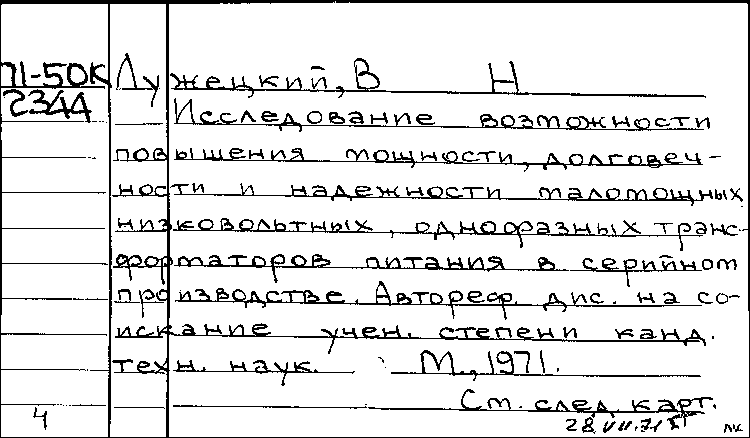 71-50К Лужецкий, В Н
2344
Исследование возможности
повышения мощности, долговеч-
ности и надежности маломощных
низковольтных, однофазных транс-
форматоров питания в серийном
производстве. Автореф. дис. на со-
искание учен. степени канд.
техн. наук. М., 1971.
См. след. карт.
4
28.VII.71